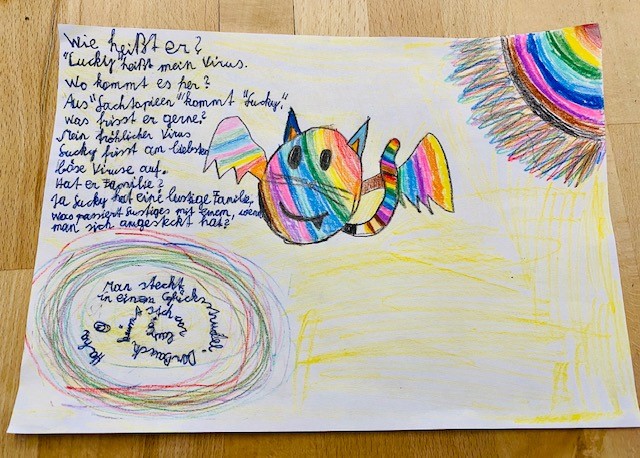 Wie heißt er?
"Lucky" heißt mein Virus.
Wo kommt es her?
Aus "Lachtopieen" kommt "Lucky".
Was frisst er gerne?
Mein fröhlicher Virus
Lucky frisst am liebsten
böse Viruse auf.
Hat er Familie?
Ja Lucky hat eine lustige Familie,
Was passiert lustiges mit einem, wenn
man sich angesteckt hat?
Man steckt
in einem Glücksstrudel
sich vor
Haha